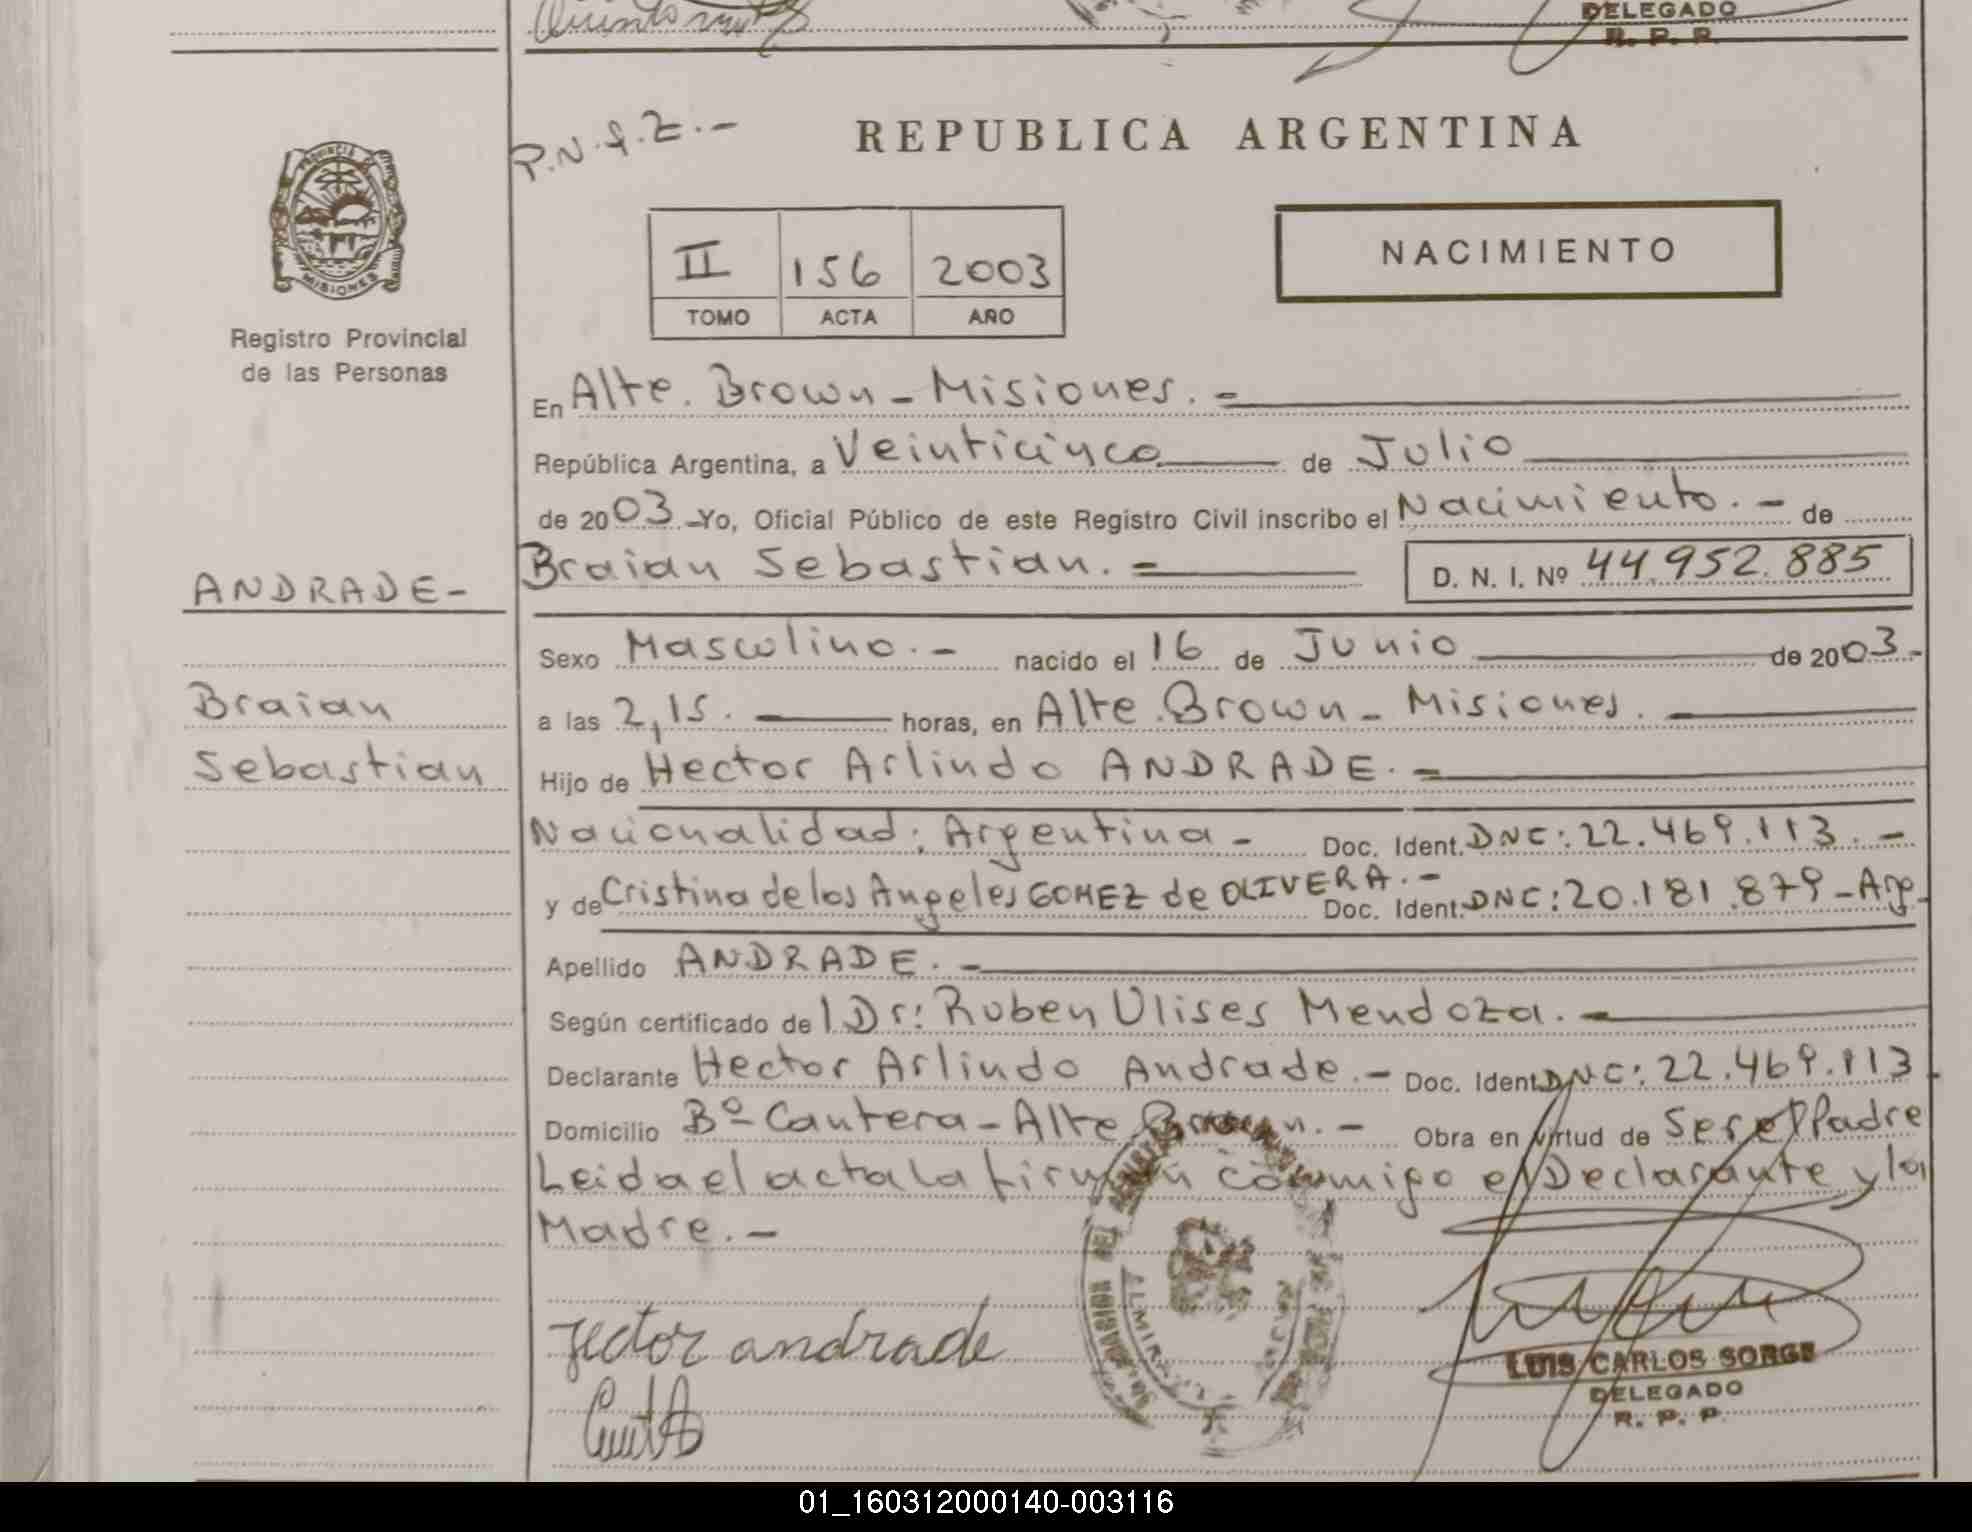 DELEGADO
R. P. P.
P.N.f.Z.-
REPUBLICA ARGENTINA
PROVINCIA DE
MISIONES
Registro Provincial
de las Personas
II 156 2003
TOMO ACTA AÑO
NACIMIENTO
En Alte. Brown - Misiones. -
República Argentina, a Veinticinco de Julio
de 2003 - Yo, Oficial Público de este Registro Civil inscribo el Nacimiento. - de
Braian Sebastian. - D. N. I. Nº 44.952.885
ANDRADE -
Sexo Masculino. - nacido el 16 de Junio de 2003. -
Braian
a las 2,15. horas, en Alte. Brown - Misiones. -
Sebastian
Hijo de Hector Arlindo ANDRADE. -
Nacionalidad: Argentina - Doc. Ident. DNC: 22.469.113. -
y de Cristina de los Angeles GOMEZ de OLIVERA. - Doc. Ident. DNC: 20.181.879 - Arg.
Apellido ANDRADE. -
Según certificado del Dr: Ruben Ulises Mendoza. -
Declarante Hector Arlindo Andrade. - Doc. Ident. DNC: 22.469.113.
Domicilio Bº Cantera - Alte. Brown. - Obra en virtud de Ser el Padre
Leida el acta la firman conmigo el Declarante y la
Madre. -
Hector andrade
LUIS CARLOS SORGE
DELEGADO
R. P. P.
01_160312000140-003116